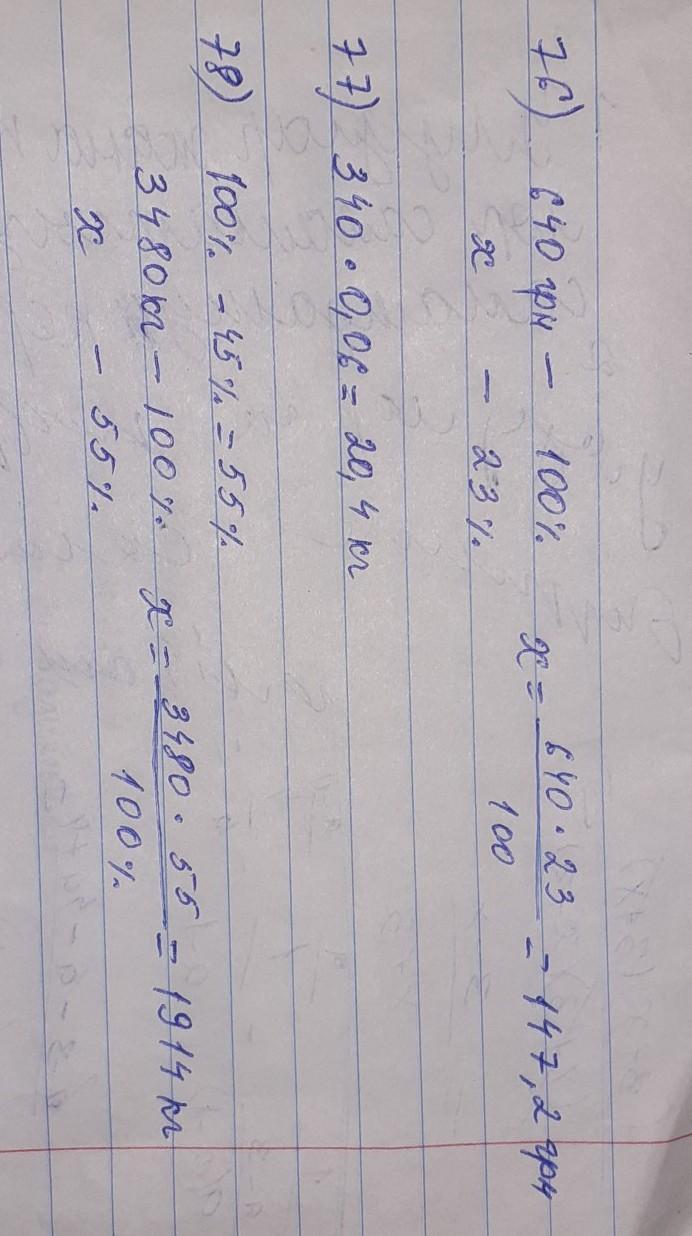 76) 640 грн – 100% x = 640 · 23 / 100 = 147,2 грн
x – 23%
77) 340 · 0,06 = 20,4 кг
78) 100% – 45% = 55%
3480 кг – 100% x = 3480 · 55 / 100% = 1914 кг
x – 55%